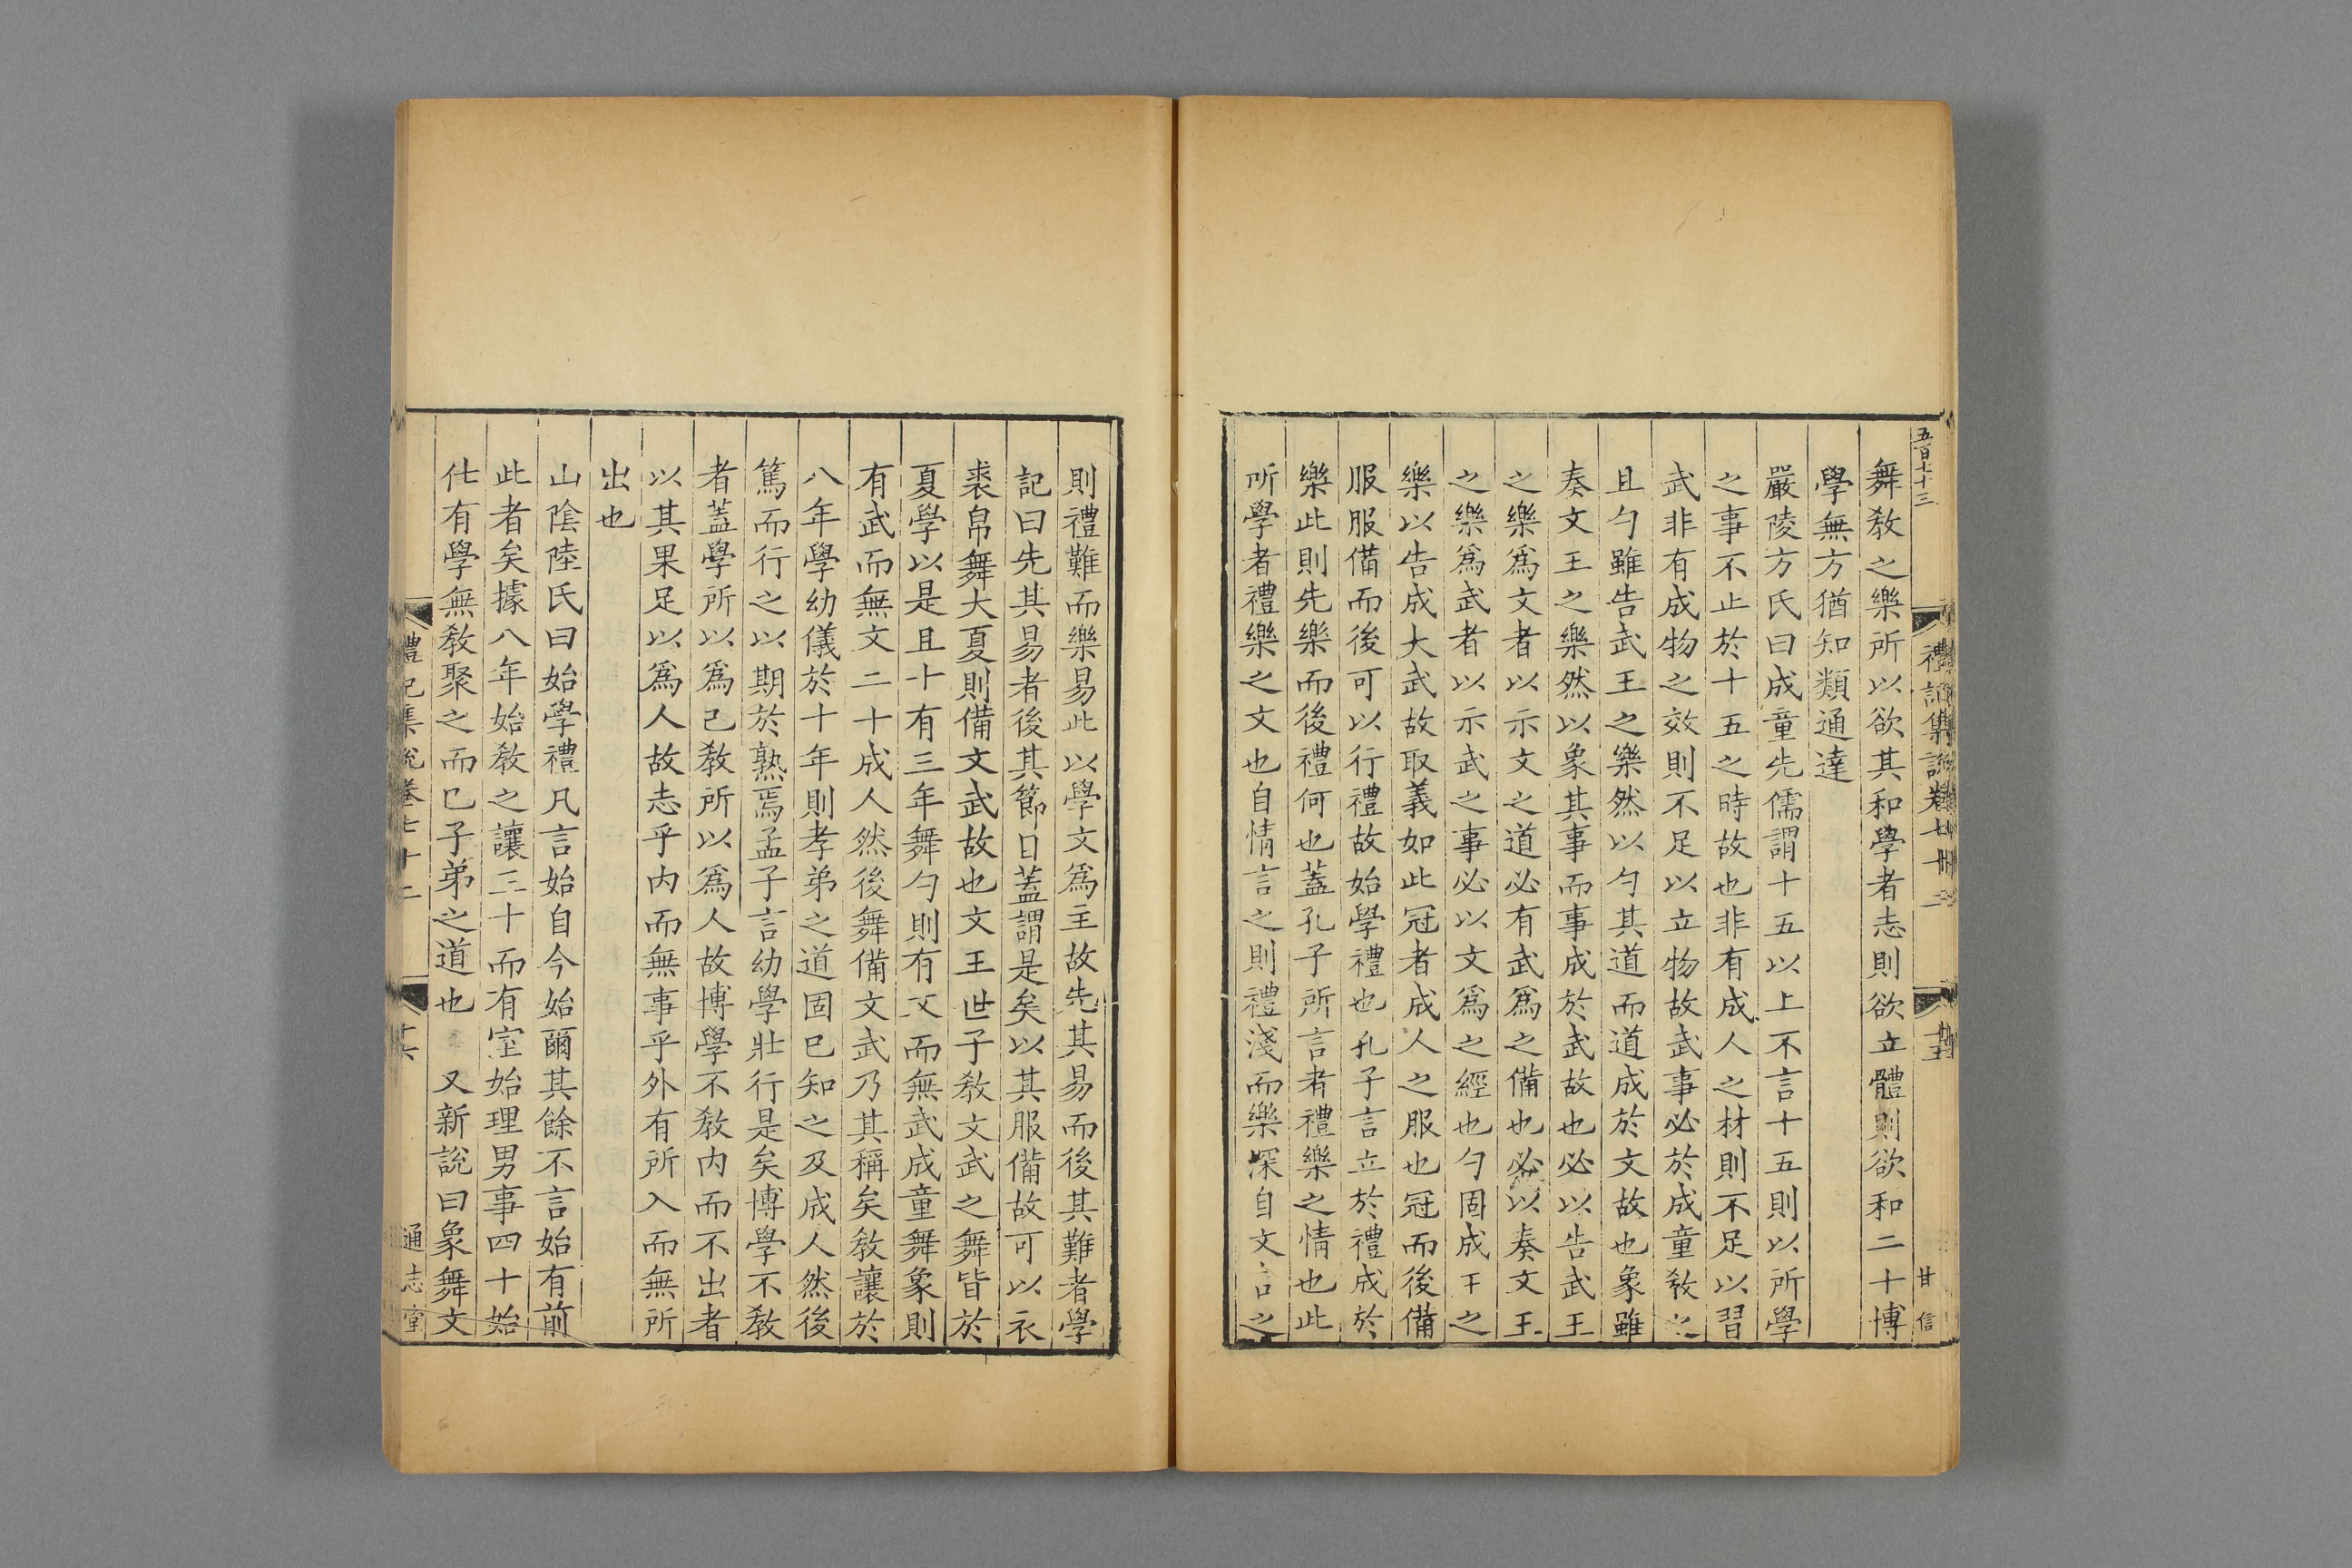 五百七十三
舞敎之樂所以欲其和學者志則欲立體則欲和二十博
學無方猶知類通達
嚴陵方氏曰成童先儒謂十五以上不言十五則以所學
之事不止於十五之時故也非有成人之材則不足以習
武非有成物之效則不足以立物故武事必於成童敎之
且勺雖告武王之樂然以勺其道而道成於文故也象雖
奏文王之樂然以象其事而事成於武故也必以告武王
之樂爲文者以示文之道必有武爲之備也必以奏文王
之樂爲武者以示武之事必以文爲之經也勺固成王之
樂以告成大武故取義如此冠者成人之服也冠而後備
服服備而後可以行禮故始學禮也孔子言立於禮成於
樂此則先樂而後禮何也蓋孔子所言者禮樂之情也此
所學者禮樂之文也自情言之則禮淺而樂深自文言之
甘信
則禮難而樂易此以學文爲主故先其易而後其難者學
記曰先其易者後其節目蓋謂是矣以其服備故可以衣
裘帛舞大夏則備文武故也文王世子敎文武之舞皆於
夏學以是且十有三年舞勺則有文而無武成童舞象則
有武而無文二十成人然後舞備文武乃其稱矣敎讓於
八年學幼儀於十年則孝弟之道固已知之及成人然後
篤而行之以期於熟焉孟子言幼學壯行是矣博學不敎
者蓋學所以爲己敎所以爲人故博學不敎内而不出者
以其果足以爲人故志乎内而無事乎外有所入而無所
出也
山陰陸氏曰始學禮凡言始自今始爾其餘不言始有前
此者矣據八年始敎之讓三十而有室始理男事四十始
仕有學無敎聚之而已子弟之道也　又新說曰象舞文
禮記集說卷七十二
通志堂